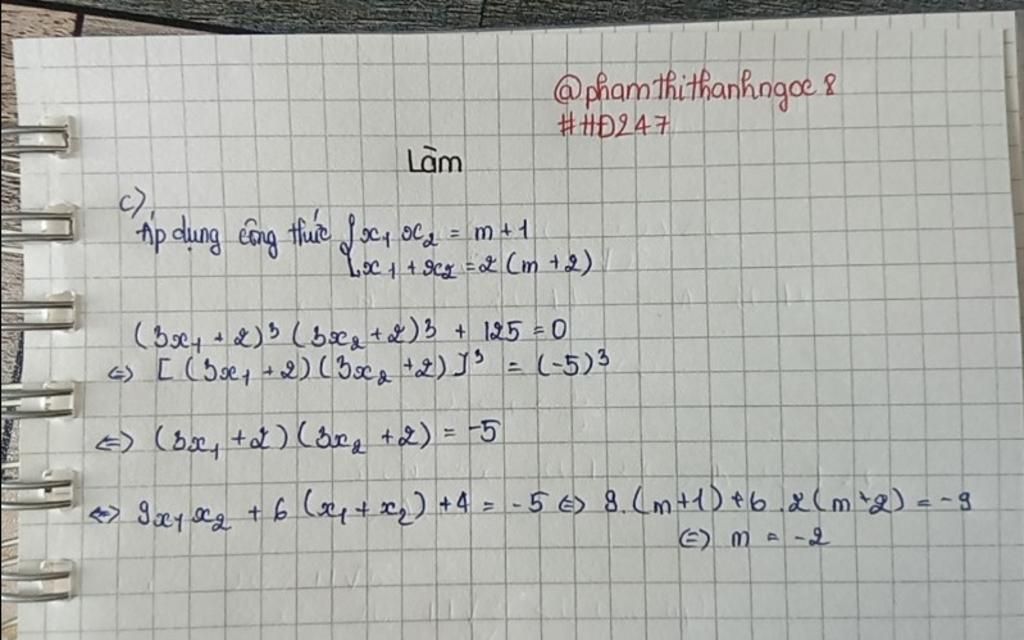 @phamthithanhngoc8
##HĐ247
Làm
c)
Áp dụng công thức { x₁ x₂ = m + 1
x₁ + x₂ = 2 (m + 2)
(3x₁ + 2)³ (3x₂ + 2)³ + 125 = 0
<=> [ (3x₁ + 2) (3x₂ + 2) ]³ = (-5)³
<=> (3x₁ + 2) (3x₂ + 2) = -5
<=> 9x₁ x₂ + 6 (x₁ + x₂) + 4 = -5 <=> 9. (m+1) + 6 . 2 (m + 2) = -9
<=> m = -2